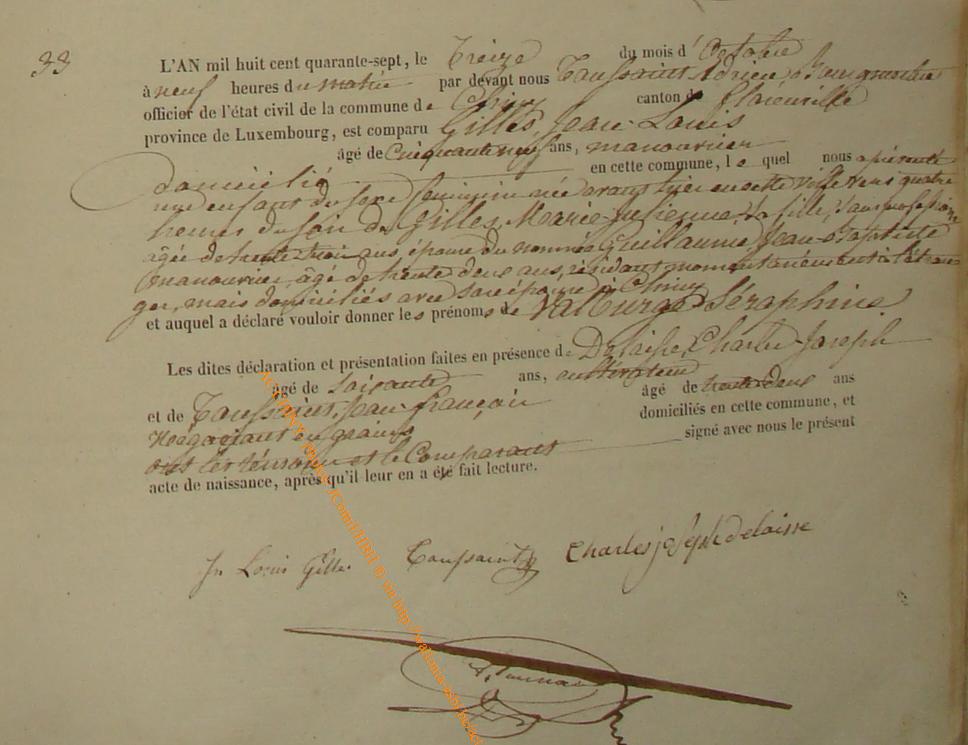 33
L'AN mil huit cent quarante-sept, le Treize du mois d' Octobre
à neuf heures du matin par devant nous Toussaint Adrien
officier de l'état civil de la commune de Chiny canton de Florenville
province de Luxembourg, est comparu Gilles, Jean Louis
âgé de Cinquante neuf ans, manouvrier
domicilié en cette commune, le quel nous a présenté
une enfant du sexe féminin née avant hier en cette ville vers quatre
heures du soir de Gilles, Marie Julienne, sa fille, sans profession
âgée de trente trois ans, épouse du nommé Guillaume Jean-Baptiste
manouvrier, âgé de trente deux ans, résidant momentanément à l'étran-
ger, mais domiciliés avec son épouse à Chiny
et auquel a déclaré vouloir donner les prénoms de Valburge Séraphine
Les dites déclaration et présentation faites en présence de Delaisse, Charles Joseph
âgé de soixante ans, cultivateur
et de Toussaint, Jean François âgé de trente deux ans
Négociant en grains domiciliés en cette commune, et
ont les témoins et le Comparant signé avec nous le présent
acte de naissance, après qu'il leur en a été fait lecture.
Jn Louis Gilles Toussaint Charles joseph delaisse